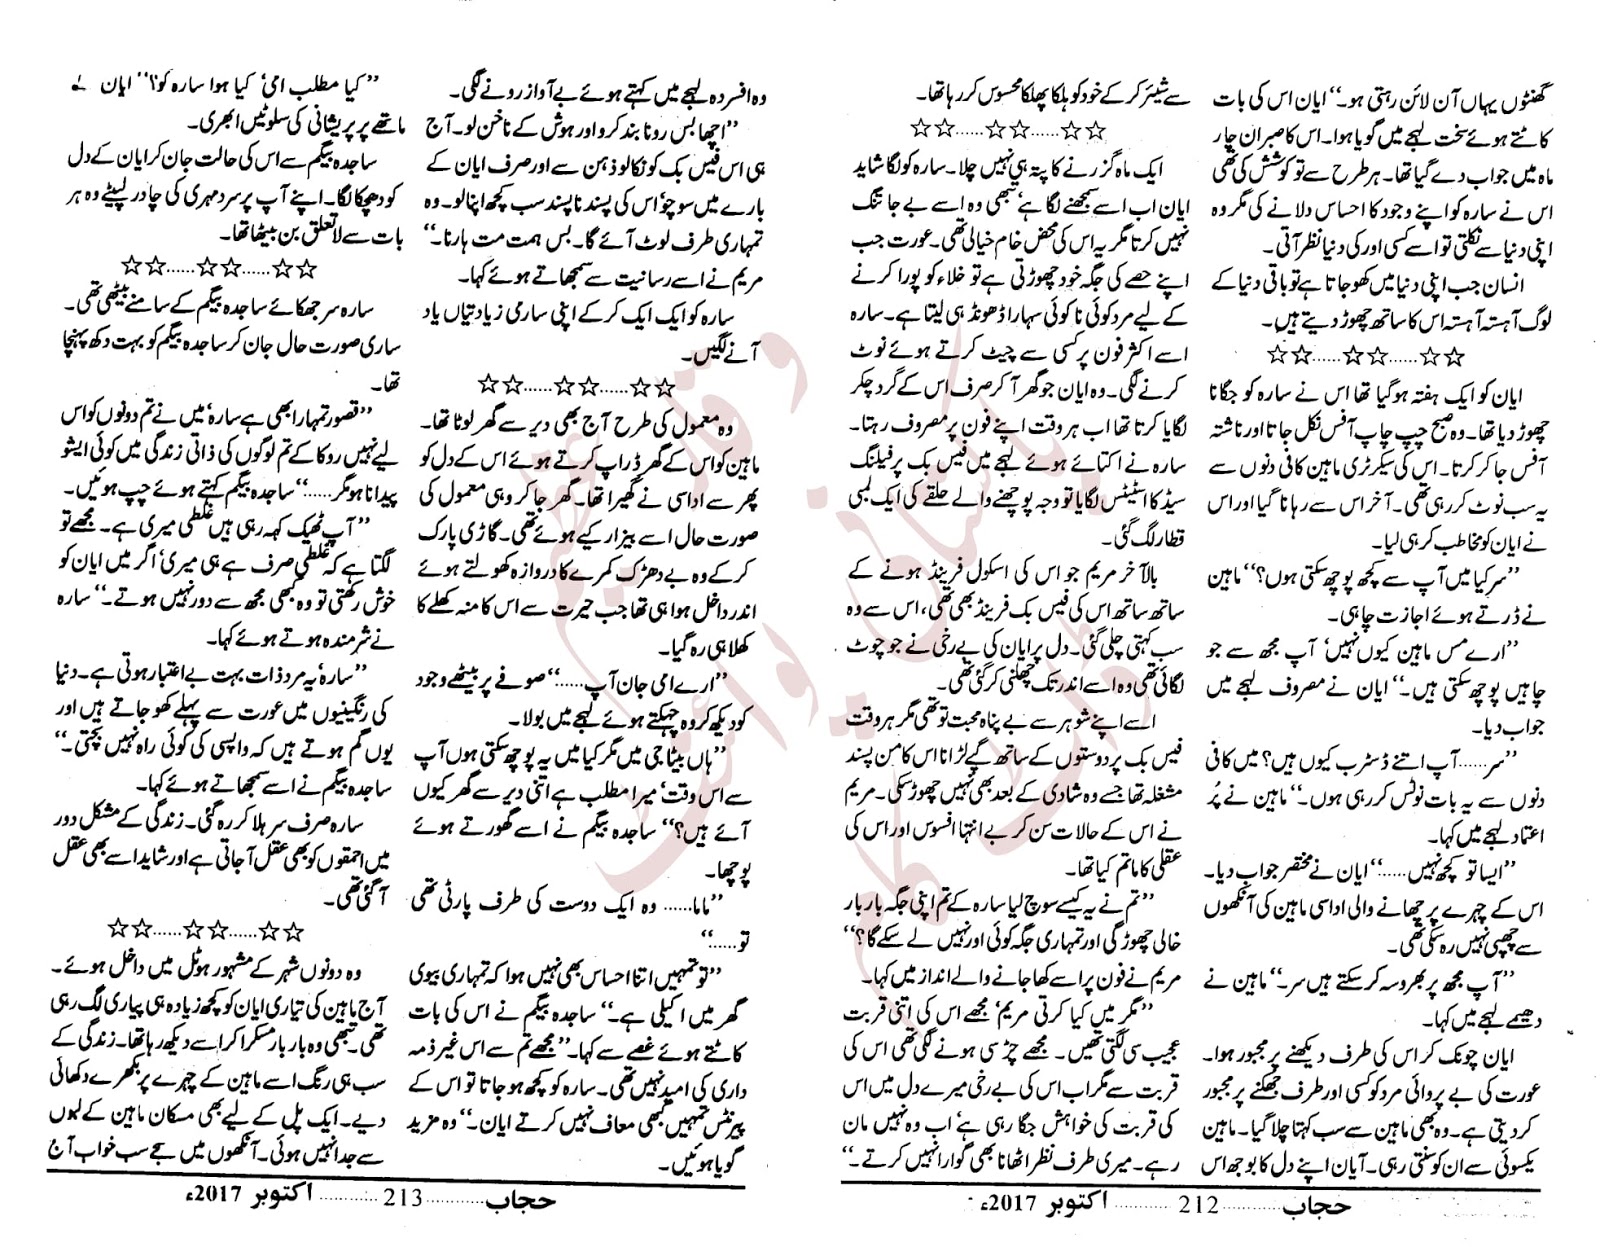 گھنٹوں یہاں آن لائن رہتی ہو۔“ ایان اس کی بات
کاٹتے ہوئے سخت لہجے میں گویا ہوا۔ اس کا صبر ان چار
ماہ میں جواب دے گیا تھا۔ ہر طرح سے تو کوشش کی تھی
اس نے سارہ کو اپنے وجود کا احساس دلانے کی مگر وہ
اپنی دنیا سے نکلتی تو اسے کسی اور کی دنیا نظر آتی۔
انسان جب اپنی دنیا میں کھو جاتا ہے تو باقی دنیا کے
لوگ آہستہ آہستہ اس کا ساتھ چھوڑ دیتے ہیں۔
☆☆......☆☆......☆☆
ایان کو ایک ہفتہ ہوگیا تھا اس نے سارہ کو جگانا
چھوڑ دیا تھا۔ وہ صبح چپ چاپ آفس نکل جاتا اور ناشتہ
آفس جا کر کرتا۔ اس کی سیکرٹری ماہین کافی دنوں سے
یہ سب نوٹ کر رہی تھی۔ آخر اس سے رہا نا گیا اور اس
نے ایان کو مخاطب کر ہی لیا۔
”سر کیا میں آپ سے کچھ پوچھ سکتی ہوں؟“ ماہین
نے ڈرتے ہوئے اجازت چاہی۔
”ارے مس ماہین کیوں نہیں‘ آپ مجھ سے جو
چاہیں پوچھ سکتی ہیں۔“ ایان نے مصروف لہجے میں
جواب دیا۔
”سر...... آپ اتنے ڈسٹرب کیوں ہیں؟ میں کافی
دنوں سے یہ بات نوٹس کر رہی ہوں۔“ ماہین نے پُر
اعتماد لہجے میں کہا۔
”ایسا تو کچھ نہیں......“ ایان نے مختصر جواب دیا۔
اس کے چہرے پر چھانے والی اداسی ماہین کی آنکھوں
سے چھپی نہیں رہ سکی تھی۔
”آپ مجھ پر بھروسہ کر سکتے ہیں سر۔“ ماہین نے
دھیمے لہجے میں کہا۔
ایان چونک کر اس کی طرف دیکھنے پر مجبور ہوا۔
عورت کی بے پروائی مرد کو کسی اور طرف جھکنے پر مجبور
کر دیتی ہے۔ وہ بھی ماہین سے سب کہتا چلا گیا۔ ماہین
یکسوئی سے ان کو سنتی رہی۔ آیان اپنے دل کا بوجھ اس
سے شیئر کر کے خود کو ہلکا پھلکا محسوس کر رہا تھا۔
☆☆......☆☆......☆☆
ایک ماہ گزرنے کا پتہ ہی نہیں چلا۔ سارہ کو لگا شاید
ایان اب اسے سمجھنے لگا ہے‘ تبھی وہ اسے بے جا تنگ
نہیں کرتا مگر یہ اس کی محض خام خیالی تھی۔ عورت جب
اپنے حصے کی جگہ خود چھوڑتی ہے تو خلاء کو پورا کرنے
کے لیے مرد کوئی نا کوئی سہارا ڈھونڈ ہی لیتا ہے۔ سارہ
اسے اکثر فون پر کسی سے چیٹ کرتے ہوئے نوٹ
کرنے لگی۔ وہ ایان جو گھر آ کر صرف اس کے گرد چکر
لگایا کرتا تھا اب ہر وقت اپنے فون پر مصروف رہتا۔
سارہ نے اکتائے ہوئے لہجے میں فیس بک پر فیلنگ
سیڈ کا اسٹیٹس لگایا تو وجہ پوچھنے والے حلقے کی ایک لمبی
قطار لگ گئی۔
بالآخر مریم جو اس کی اسکول فرینڈ ہونے کے
ساتھ ساتھ اس کی فیس بک فرینڈ بھی تھی، اس سے وہ
سب کہتی چلی گئی۔ دل پر ایان کی بے رخی نے جو چوٹ
لگائی تھی وہ اسے اندر تک چھلنی کر گئی تھی۔
اسے اپنے شوہر سے بے پناہ محبت تو تھی مگر ہر وقت
فیس بک پر دوستوں کے ساتھ گپے لڑانا اس کا من پسند
مشغلہ تھا جسے وہ شادی کے بعد بھی نہیں چھوڑ سکی۔ مریم
نے اس کے حالات سن کر بے انتہا افسوس اور اس کی
عقلی کا ماتم کیا تھا۔
”تم نے یہ کیسے سوچ لیا سارہ کے تم اپنی جگہ بار بار
خالی چھوڑ گی اور تمہاری جگہ کوئی اور نہیں لے سکے گا؟“
مریم نے فون پر اسے کھا جانے والے انداز میں کہا۔
”مگر میں کیا کرتی مریم‘ مجھے اس کی اتنی قربت
عجیب سی لگتی تھیں۔ مجھے چڑ سی ہونے لگی تھی اس کی
قربت سے مگر اب اس کی بے رخی میرے دل میں اس
کی قربت کی خواہش جگا رہی ہے‘ اب وہ نہیں مان
رہے۔ میری طرف نظر اٹھانا بھی گوارا نہیں کرتے۔“
حجاب............212............اکتوبر 2017ء
وہ افسردہ لہجے میں کہتے ہوئے بے آواز رونے لگی۔
”اچھا بس رونا بند کرو اور ہوش کے ناخن لو۔ آج
ہی اس فیس بک کو نکالو ذہن سے اور صرف ایان کے
بارے میں سوچو‘ اس کی پسند نا پسند سب کچھ اپنا لو۔ وہ
تمہاری طرف لوٹ آئے گا۔ بس ہمت مت ہارنا۔“
مریم نے اسے رسانیت سے سمجھاتے ہوئے کہا۔
سارہ کو ایک ایک کر کے اپنی ساری زیادتیاں یاد
آنے لگیں۔
☆☆......☆☆......☆☆
وہ معمول کی طرح آج بھی دیر سے گھر لوٹا تھا۔
ماہین کو اس کے گھر ڈراپ کرتے ہوئے اس کے دل کو
پھر سے اداسی نے گھیرا تھا۔ گھر جا کر وہی معمول کی
صورت حال اسے بیزار کیے ہوئے تھی۔ گاڑی پارک
کر کے وہ بے دھڑک کمرے کا دروازہ کھولتے ہوئے
اندر داخل ہوا ہی تھا جب حیرت سے اس کا منہ کھلے کا
کھلا ہی رہ گیا۔
”ارے امی جان آپ......“ صوفے پر بیٹھے وجود
کو دیکھ کر وہ چہکتے ہوئے لہجے میں بولا۔
”ہاں بیٹا جی میں مگر کیا میں یہ پوچھ سکتی ہوں آپ
سے اس وقت‘ میرا مطلب ہے اتنی دیر سے گھر کیوں
آئے ہیں؟“ ساجدہ بیگم نے اسے گھورتے ہوئے
پوچھا۔
”ماما...... وہ ایک دوست کی طرف پارٹی تھی
تو......“
”تو تمہیں اتنا احساس بھی نہیں ہوا کہ تمہاری بیوی
گھر میں اکیلی ہے۔“ ساجدہ بیگم نے اس کی بات
کاٹتے ہوئے غصے سے کہا۔ ”مجھے تم سے اس غیر ذمہ
داری کی امید نہیں تھی۔ سارہ کو کچھ ہو جاتا تو اس کے
پیرنٹس تمہیں کبھی معاف نہیں کرتے ایان۔“ وہ مزید
گویا ہوئیں۔
”کیا مطلب امی‘ کیا ہوا سارہ کو؟“ ایان کے
ماتھے پر پریشانی کی سلوٹیں ابھری۔
ساجدہ بیگم سے اس کی حالت جان کر ایان کے دل
کو دھچکا لگا۔ اپنے آپ پر سرد مہری کی چادر لپیٹے وہ ہر
بات سے لاتعلق بن بیٹھا تھا۔
☆☆......☆☆......☆☆
سارہ سر جھکائے ساجدہ بیگم کے سامنے بیٹھی تھی۔
ساری صورت حال جان کر ساجدہ بیگم کو بہت دکھ پہنچا
تھا۔
”قصور تمہارا بھی ہے سارہ‘ میں نے تم دونوں کو اس
لیے نہیں روکا کے تم لوگوں کی ذاتی زندگی میں کوئی ایشو
پیدا نا ہو مگر......“ ساجدہ بیگم کہتے ہوئے چپ ہوئیں۔
”آپ ٹھیک کہہ رہی ہیں غلطی میری ہے۔ مجھے تو
لگتا ہے کہ غلطی صرف ہے ہی میری‘ اگر میں ایان کو
خوش رکھتی تو وہ کبھی مجھ سے دور نہیں ہوتے۔“ سارہ
نے شرمندہ ہوتے ہوئے کہا۔
”سارہ‘ یہ مرد ذات بہت بے اعتبار ہوتی ہے۔ دنیا
کی رنگینیوں میں عورت سے پہلے کھو جاتے ہیں اور
یوں گم ہوتے ہیں کہ واپسی کی کوئی راہ نہیں بچتی۔“
ساجدہ بیگم نے اسے سمجھاتے ہوئے کہا۔
سارہ صرف سر ہلا کر رہ گئی۔ زندگی کے مشکل دور
میں احمقوں کو بھی عقل آ جاتی ہے اور شاید اسے بھی عقل
آ گئی تھی۔
☆☆......☆☆......☆☆
وہ دونوں شہر کے مشہور ہوٹل میں داخل ہوئے۔
آج ماہین کی تیاری ایان کو کچھ زیادہ ہی پیاری لگ رہی
تھی۔ تبھی وہ بار بار مسکرا کر اسے دیکھ رہا تھا۔ زندگی کے
سب ہی رنگ اسے ماہین کے چہرے پر بکھرے دکھائی
دیے۔ ایک پل کے لیے بھی مسکان ماہین کے لبوں
سے جدا نہیں ہوئی۔ آنکھوں میں سجے سب خواب آج
حجاب............213............اکتوبر 2017ء